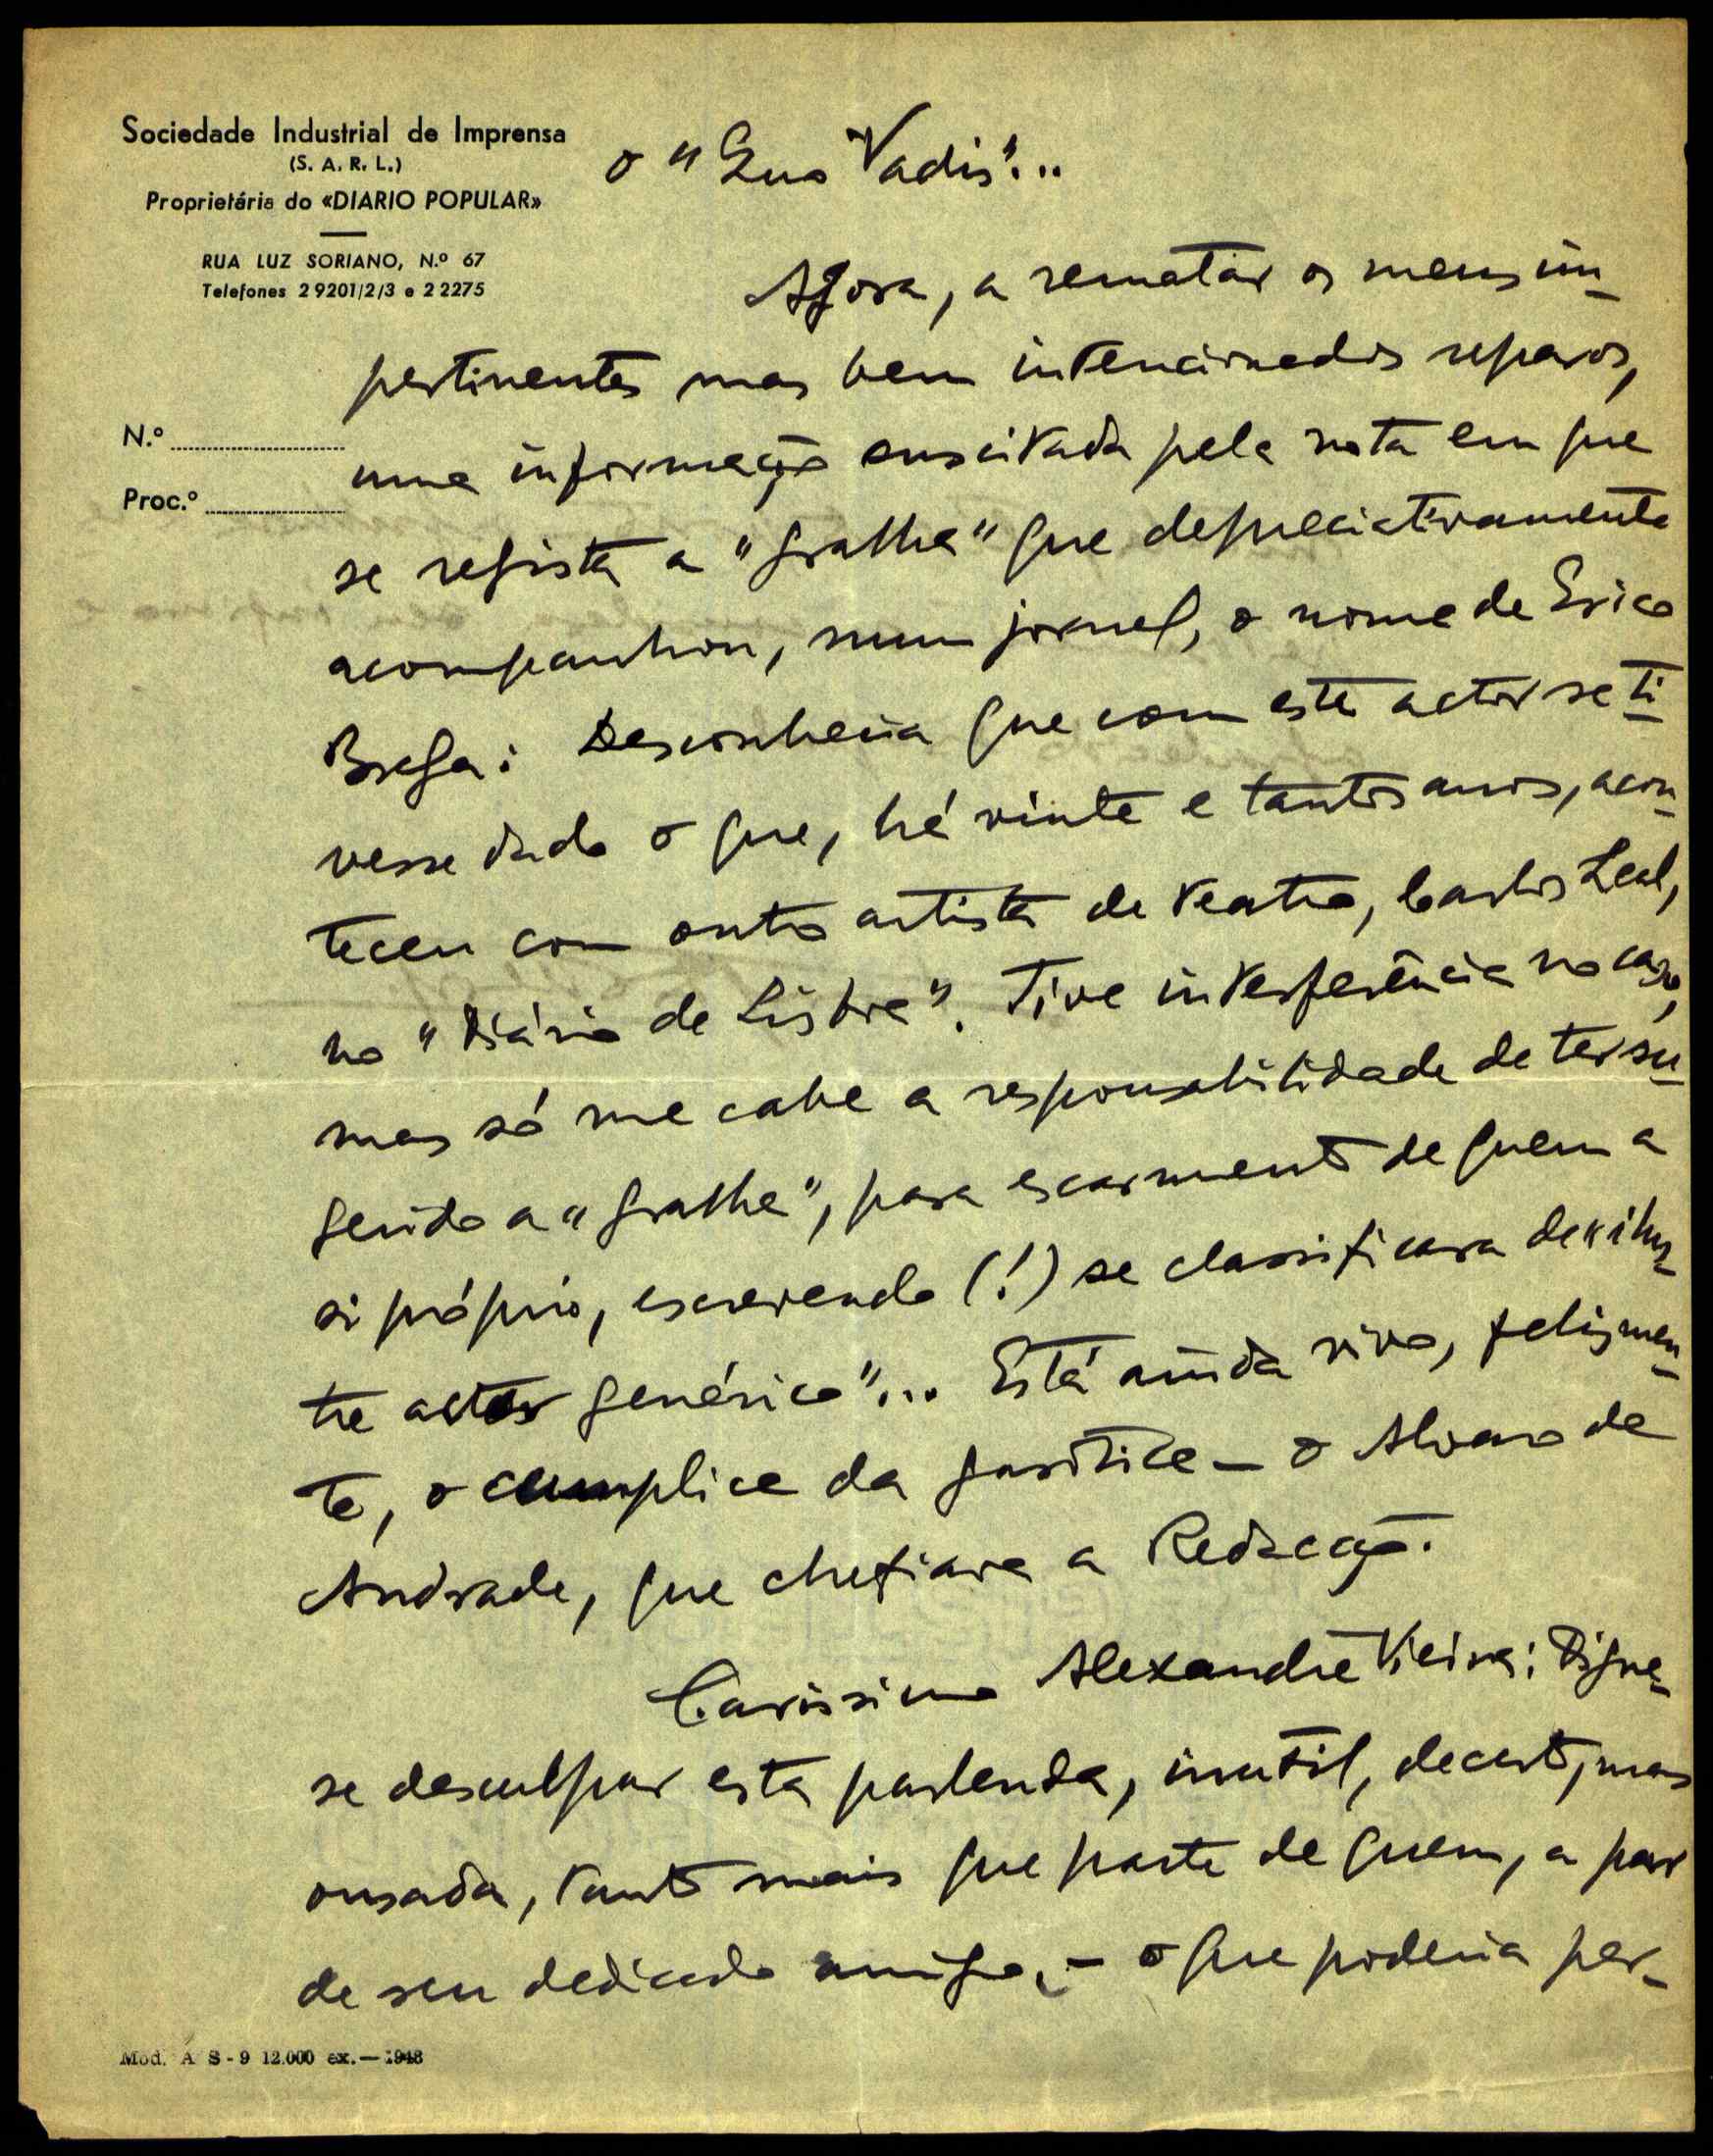 Sociedade Industrial de Imprensa
(S. A. R. L.)
Proprietária do «DIARIO POPULAR»
RUA LUZ SORIANO, N.º 67
Telefones 2 9201/2/3 e 2 2275
N.º
Proc.º
o "Quo Vadis"...
Agora, a rematar os meus im-
pertinentes mas bem intencionados reparos,
uma informação suscitada pela nota em que
se regista a "gralha" que depreciativamente
acompanhou, num jornal, o nome de Erico
Braga: Desconhecia que com este actor se ti-
vesse dado o que, há vinte e tantos anos, acon-
teceu com outro artista de teatro, Carlos Leal,
no "Diário de Lisboa". Tive interferência no caso,
mas só me cabe a responsabilidade de ter su-
gerido a "gralha", para escarmento de quem a
si próprio, escrevendo (!) se classificara de "ilus-
tre actor genérico"... Está ainda vivo, felizmen-
te, o cumplice da garotice — o Alvaro de
Andrade, que chefiava a Redacção.
Caríssimo Alexandre Vieira: Digne-
se desculpar esta parlenda, inutil, decerto, mas
ousada, tanto mais que parte de quem, a par
de seu dedicado amigo, — o que poderia per-
Mod. A S - 9 12.000 ex. — 1948